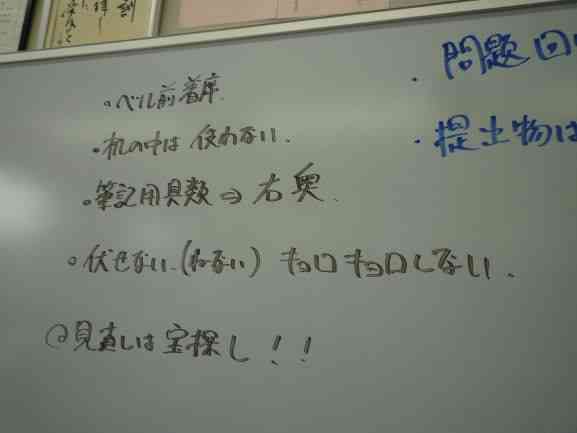 。ベル前着席.
・机の中は 使わない.
。筆記用具類⇒右奥.
。伏せない.(ねない) キョロキョロしない.
◎見直しは宝探し!!
・問題回
・提出物は